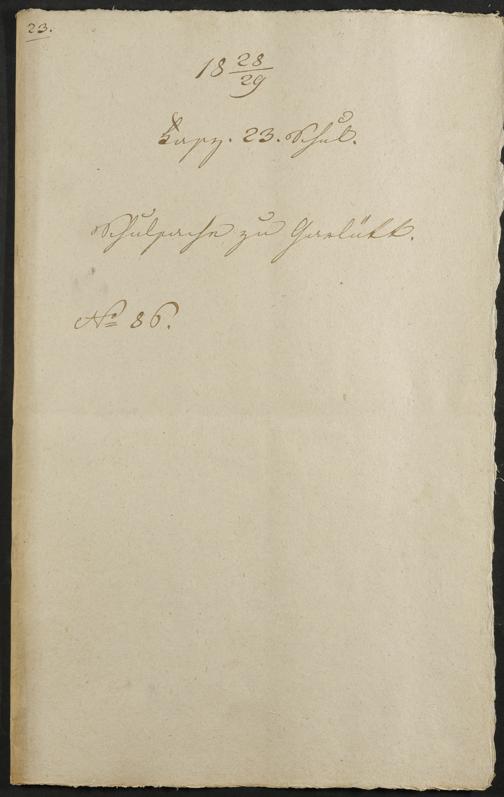 23.
18 28/29
Kapz. 23. Schul.
Schulsache zu Garlütt.
No 86.